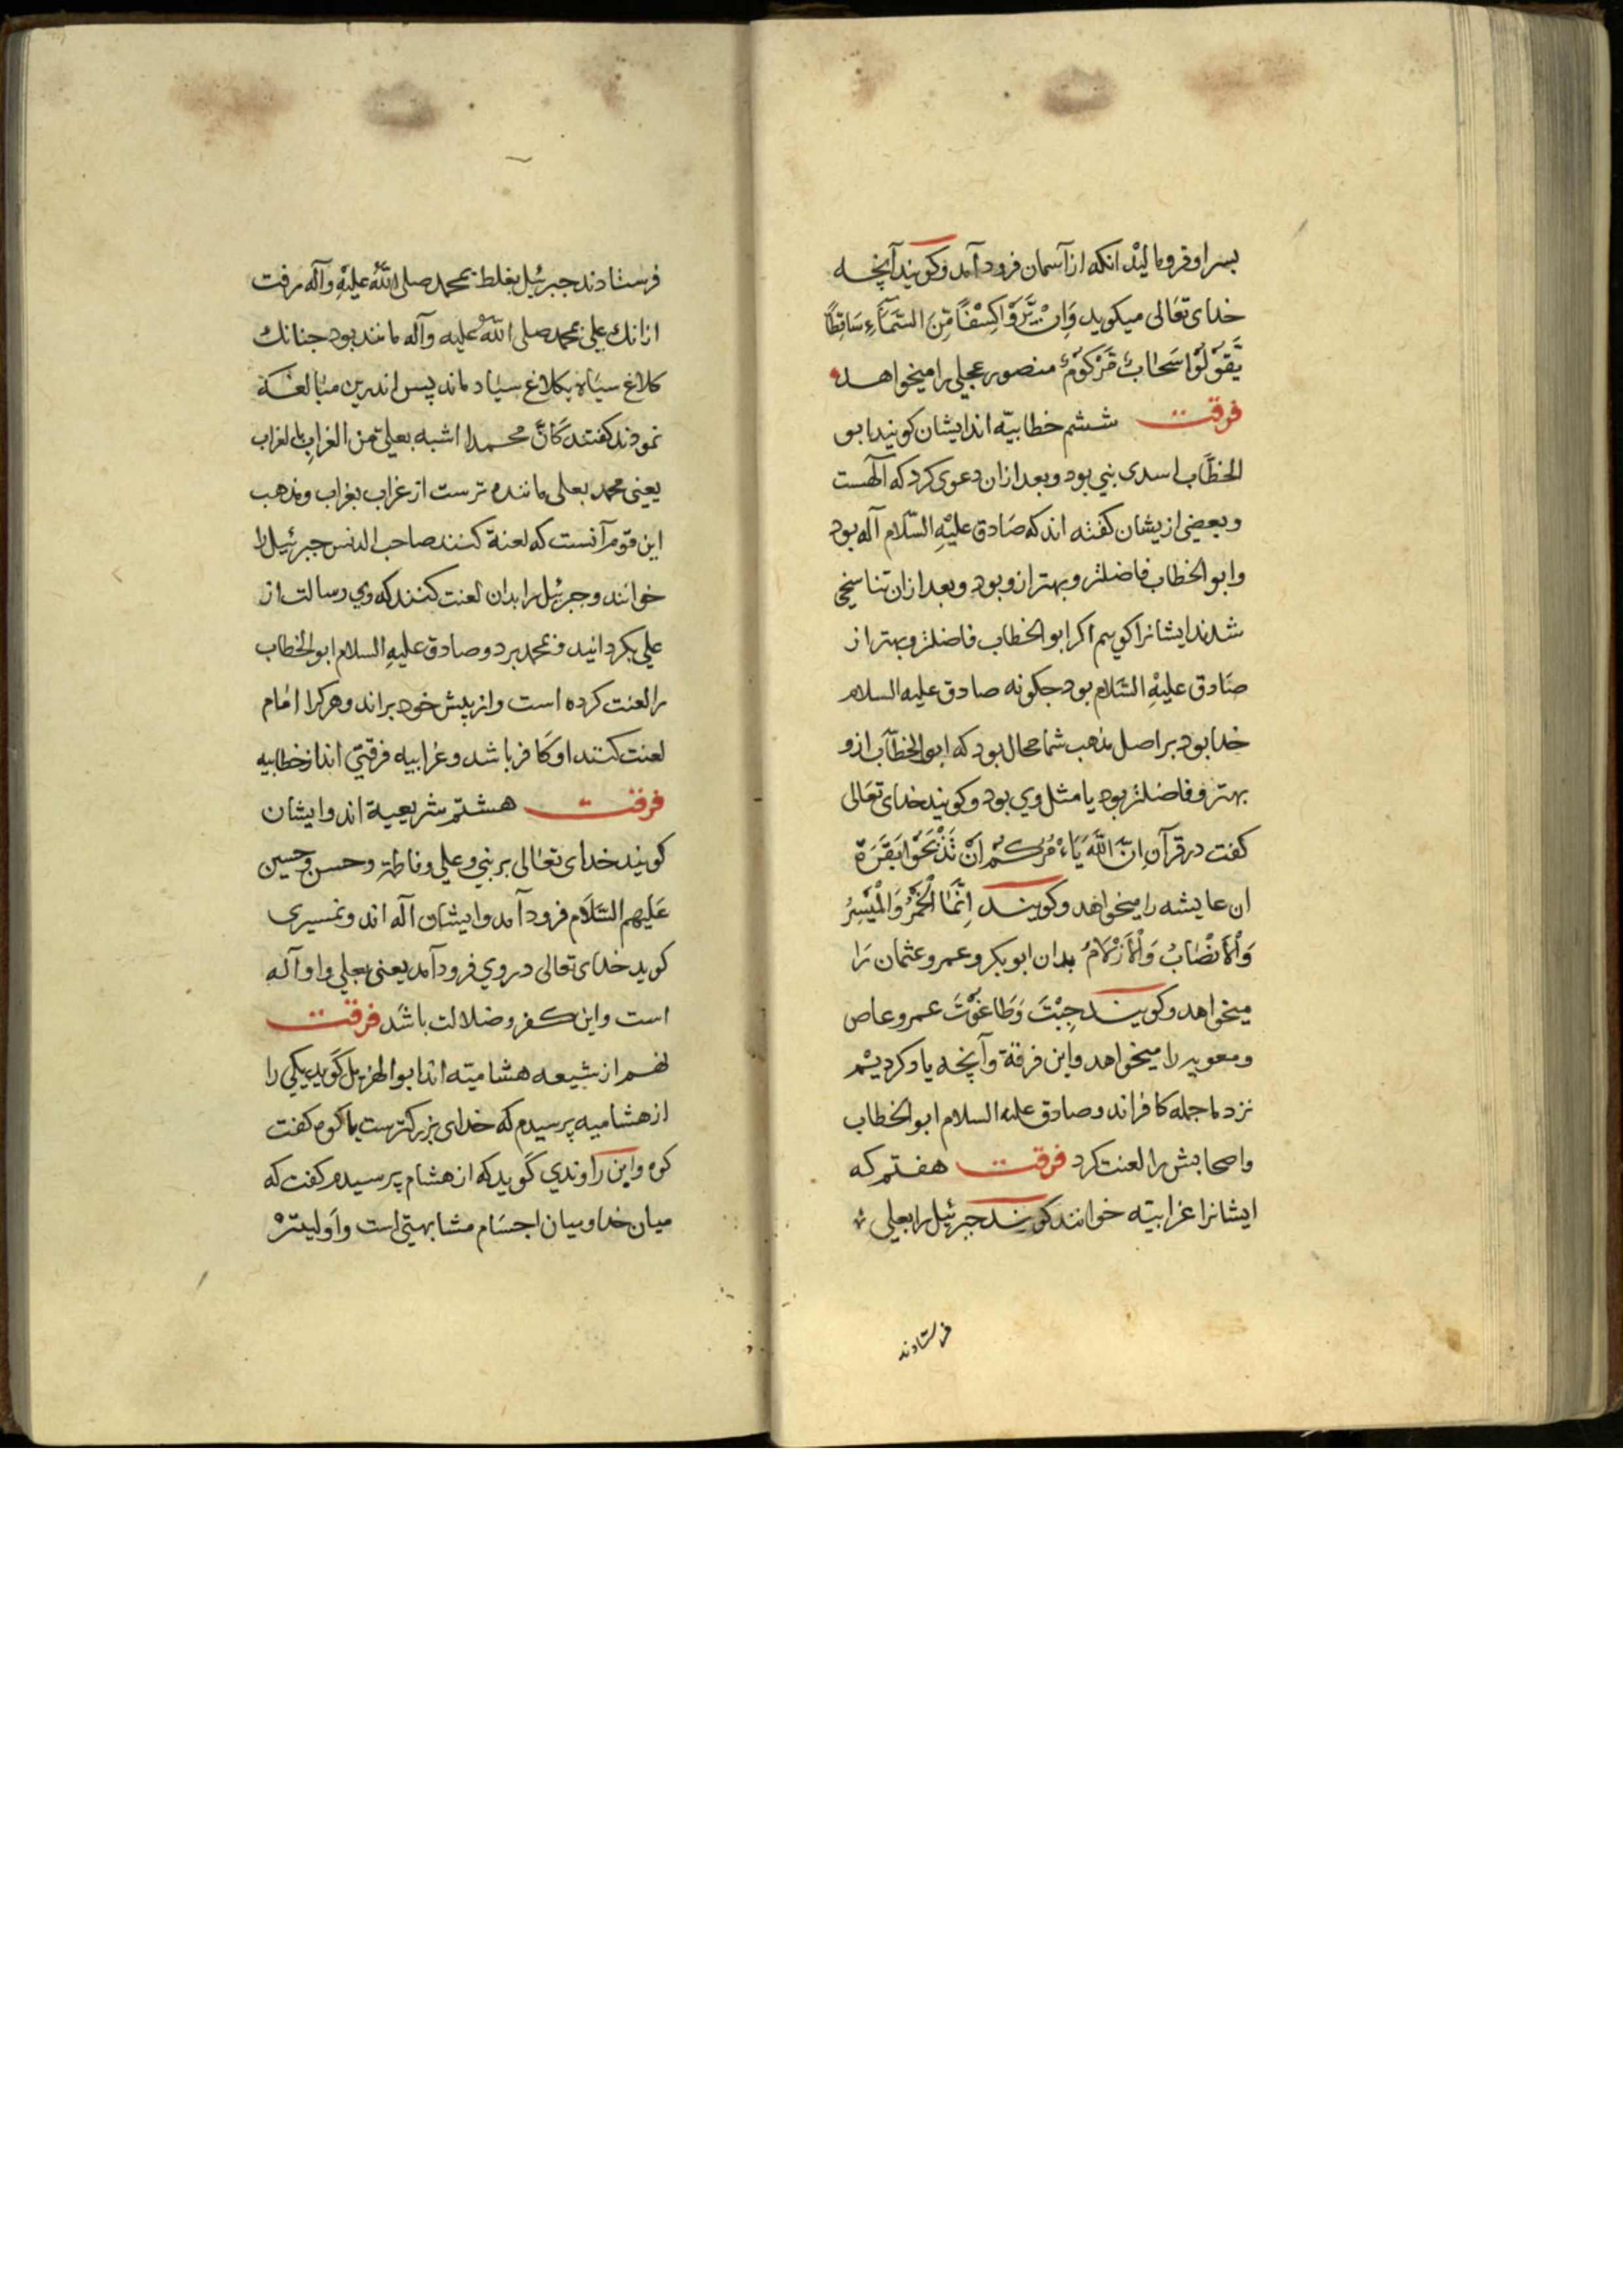 بسر او فرو مالید انکه از آسمان فرود آمد و کویند آنچه
خدای تعالی میکوید وَاِنْ یَّرَوْا کِسْفًا مِّنَ السَّمَآءِ سَاقِطًا
یَّقُوْلُوْا سَحَابٌ مَّرْکُوْمٌ منصور عجلی را میخواهد
فرقت ششم خطابیّه اند ایشان کویند ابو
الخطّاب اسدی نبی بود و بعد ازان دعوی کرد که آلهست
و بعضی ازیشان کفته اند که صَادق علیْهِ السّلام آله بود
و ابو الخطاب فاضلتر و بهتر ازو بود و بعد ازان تناسخی
شدند ایشانرا کویم اکر ابو الخطاب فاضلتر و بهتر از
صَادق علیْهِ السَّلام بود جکونه صادق علیه السلام
خدا بود بر اصل مذهب شما محال بود که ابو الخطّاب ازو
بهتر و فاضلتر بود یا مثل وی بود و کویند خدای تعَالی
کفت در قرآن اِنَّ اللّٰهَ یَاْمُرُکُمْ اَنْ تَذْبَحُوْا بَقَرَة
ان عایشه را میخواهد و کویند اِنَّمَا الْخَمْرُ وَالْمَیْسِرُ
وَالْاَنْصَابُ وَالْاَزْلَامُ بدان ابو بکر و عمر و عثمان رَا
میخواهد و کویند جِبْتَ وَطَاغُوْتَ عمرو عاص
و معویه را میخواهد و این فرقة و آنچه یاد کردیْم
نزد ما جمله کافراند و صادق علیه السلام ابو الخطاب
و اصحابش را لعنت کرد فرقت هفتم که
ایشانرا غرابیّه خوانند کویند جبرئیل را بعلی
فرستادند
فرستادند جبرئیل بغلط بمحمد صلی اللّٰه علیْهِ وآله رفت
ازانك علی بمحمد صلی اللّٰه علیه وآله مانند بود جنانك
کلاغ سیَاه بکلاغ سیَاه ماند پس اندرین مبَالغة
نمودند کفتند کَانَّ محمدا اشبه بعلی من الغرابِ بالغراب
یعنی محمد بعلی ماننده ترست از غراب بغراب و مذهب
این قوم آنست که لعنة کنند صاحب الدنس جبرئیل را
خوانند و جبرئیل را بدان لعنت کنند که وی رسالت از
علی بکردانید و بمحمد برد و صادق علیهِ السلام ابو الخطاب
را لعنت کرده است و از پیش خود براند و هرکرا امَام
لعنت کنند او کَافر باشد و غرابیه فرقتی اند از خطابیه
فرقت هشتم شریعیة اند و ایشان
کویند خدای تعَالی بر نبی و علی و فاطمة و حسن و حسین
عَلیهم السَّلَام فرود آمد و ایشان آله اند و نمیری
کوید خدای تعالی در وی فرود آمد یعنی بعلی و او آله
است و این کفر و ضلالت باشَد فرقت
نهم از شیعه هشامیّه اند ابو الهزیل گوید یکی را
از هشامیه پرسیدم که خدای بزرکترست یا کوه کفت
کوه و ابن رَاوندی گوید که از هشام پرسیدم کفت که
میان خدا و میان اجسَام مشابهتی است و اولیترْ